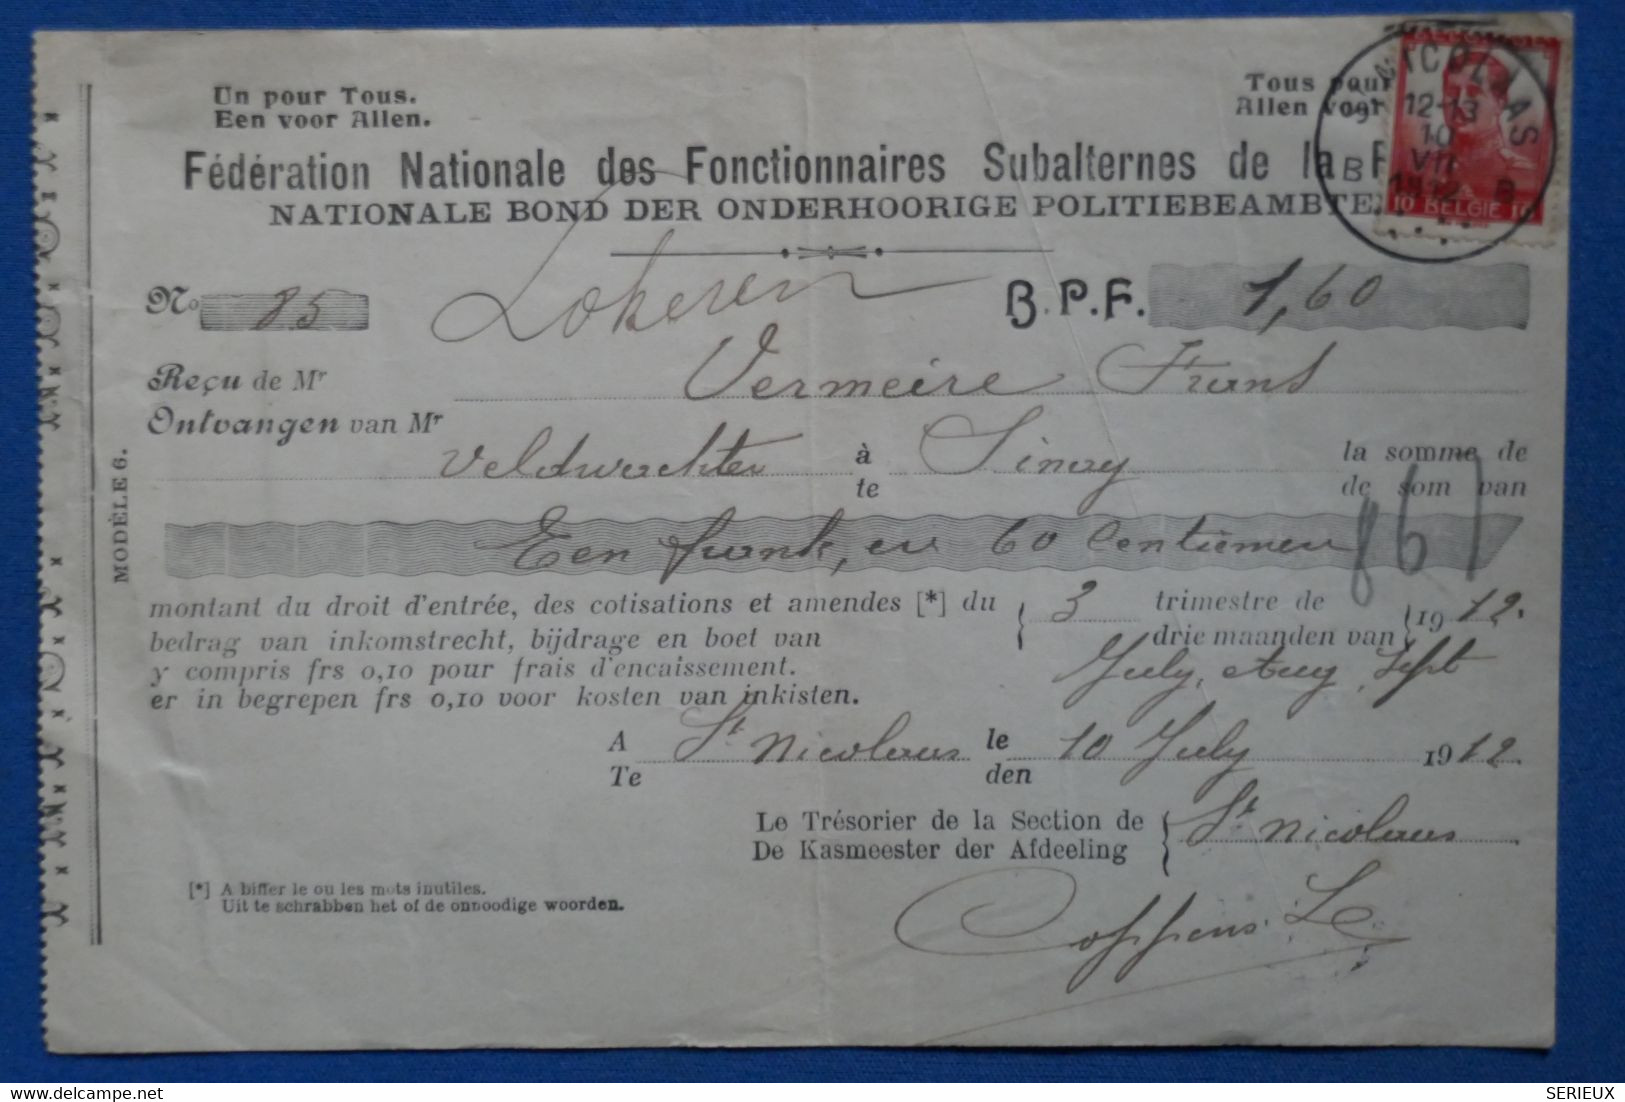 Un pour Tous.
Een voor Allen.
Tous pour
Allen voor
Fédération Nationale des Fonctionnaires Subalternes de la P
NATIONALE BOND DER ONDERHOORIGE POLITIEBEAMBTE
NICOLAAS
12-13
10
VII
1912
B B
10 BELGIE 10
No 85
Lokeren
B.P.F. 1,60
Reçu de Mr
Ontvangen van Mr
Vermeire Frans
Veldwachter à te Sinay
la somme de
de som van
Een frank, en 60 Centiemen
867
montant du droit d'entrée, des cotisations et amendes [*] du 3 trimestre de 1912.
bedrag van inkomstrecht, bijdrage en boet van drie maanden van
y compris frs 0,10 pour frais d'encaissement.
July, Aug, Sept
er in begrepen frs 0,10 voor kosten van inkisten.
A St. Nicolaas le 10 July 1912.
Te den
Le Trésorier de la Section de
De Kasmeester der Afdeeling
St Nicolaas
[*] A biffer le ou les mots inutiles.
Uit te schrabben het of de onnoodige woorden.
Coppens L
MODÈLE 6.
SERIEUX